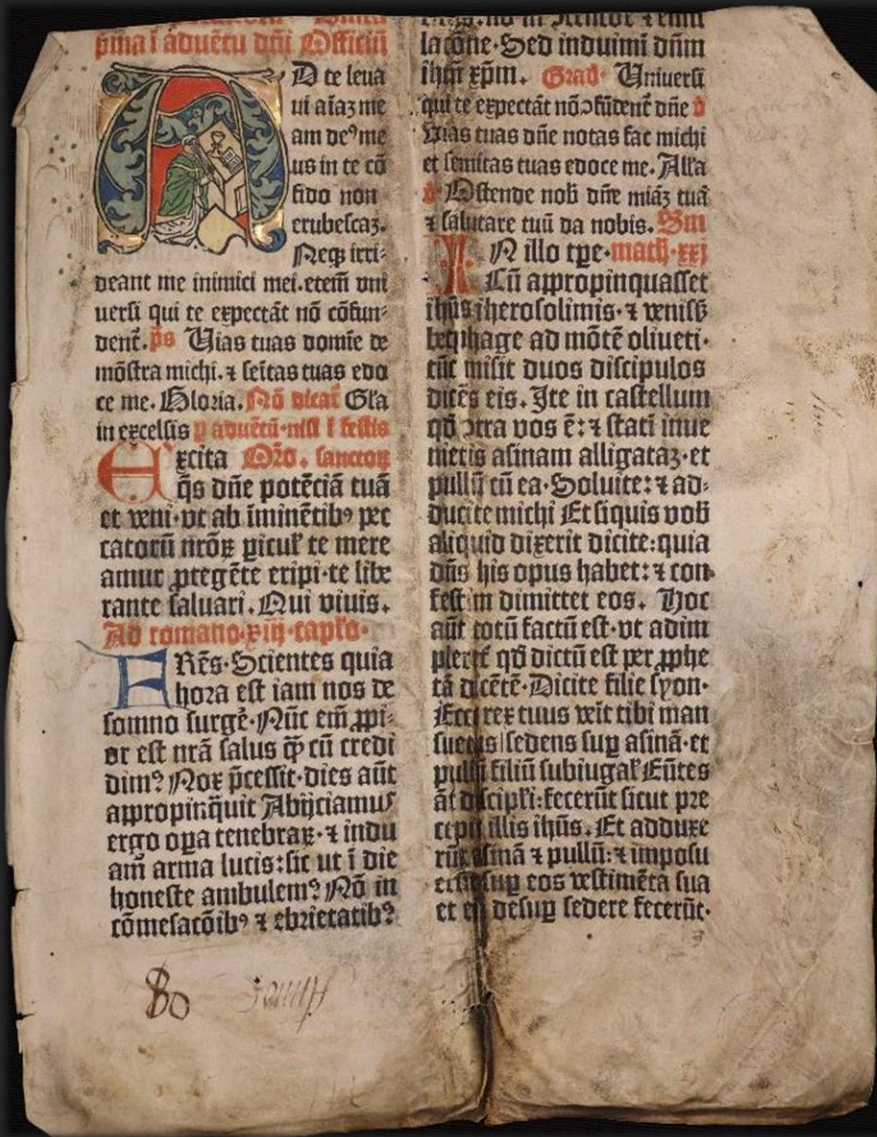 p̃ma ĩ aduẽtu dñi Officiũ
AD te leua
ui aĩaz me
am deꝰ me
us in te cõ
fido non
erubescaz.
Neqꝫ irri⸗
deant me inimici mei. etem̃ vni
uersi qui te expectãt nõ cõfun⸗
dent̃. p̃s Uias tuas domĩe de
mõstra michi. ⁊ sẽitas tuas edo
ce me. Gloria. Nõ dicat̃ Gl'a
in excelsis ꝑ aduẽtũ·nisi ĩ festis
Excita Oro. sanctoꝝ
q̃s dñe potẽciã tuã
et veni·vt ab ĩminẽtibꝰ pec
catorũ nr̃oꝝ ꝑicul' te mere
amur ꝓtegẽte eripi·te libe
rante saluari. Qui viuis.
Ad romano·xiij·cap̃lo·
FRẽs·Scientes quia
hora est iam nos de
somno surgẽ·Nũc em̃ ꝓpi⸗
or est nr̃a salus q̃ꝫ cũ credi
dimꝰ Nox p̃cessit·dies aũt
appropinq̃uit Abijciamus
ergo oꝑa tenebraꝝ·⁊ indu
am̃ arma lucis: sic ut ĩ die
honeste ambulemꝰ Nõ in
cõmesacõibꝰ ⁊ ebrietatibꝰ
lacõne·Sed induimĩ dñm
ihm̃ xp̃m. Grad· Uniuersi
qui te expectãt nõ ↄfũdent̃ dñe ꝟ
Uias tuas dñe notas fac michi
et semitas tuas edoce me. All'a
ꝟ Ostende nob̃ dñe miãz tuã
⁊ salutare tuũ da nobis. Sm
IN illo tp̃e·math·xxj
Cũ appropinquasset
ihũs iherosolimis·⁊ veniss̃
bethphage ad mõtẽ oliueti·
tũc misit duos discipulos
dicẽs eis. Ite in castellum
qd̃ ↄtra vos ẽ: ⁊ stati inue
nietis asinam alligataz·et
pullũ cũ ea·Soluite: ⁊ ad⸗
ducite michi Et siquis vob̃
aliquid dixerit dicite: quia
dñs his opus habet: ⁊ con⸗
festim dimittet eos. Hoc
aũt totũ factũ est·vt adim
pleret̃ qd̃ dictũ est per ꝓphe
tã dicẽtẽ·Dicite filie syon·
Ecce rex tuus veĩt tibi man
suetus sedens suꝑ asinã·et
pullũ filiũ subiugal' Eũtes
ãt discipl'i: fecerũt sicut pre
cepit illis ihũs. Et adduxe
rũt asinã ⁊ pullũ: ⁊ imposu
erũt suꝑ eos vestimẽta sua
et eũ desuꝑ sedere fecerũt·
80